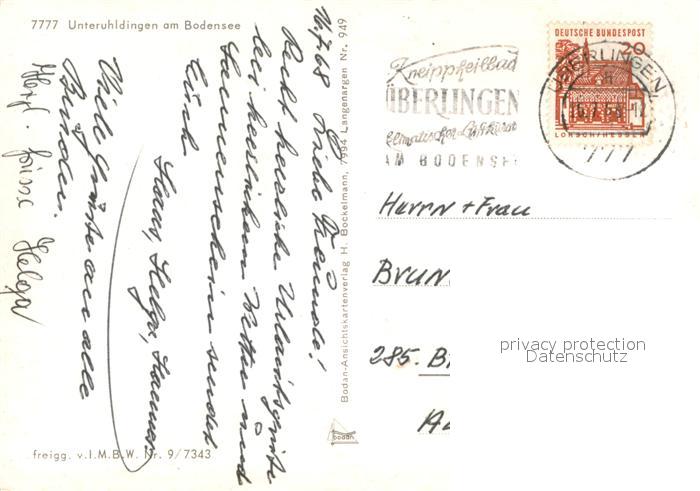 7777 Unteruhldingen am Bodensee
16.7.68 Liebe Freunde!
Recht herzliche Urlaubsgrüße
bei herrlichem Wetter und
Sonnenschein sendet
Euch
Hans, Helga, Hannes
Viele Grüße an alle
Bunden.
Herzl. Grüsse Helga
Bodan-Ansichtskartenverlag H. Bockelmann, 7994 Langenargen Nr. 949
bodan
freigg. v.I.M.B.W. Nr. 9/7343
Kneippheilbad
ÜBERLINGEN
klimatischer Luftkurort
AM BODENSEE
DEUTSCHE BUNDESPOST
20
LORSCH/HESSEN
ÜBERLINGEN
777
Herrn + Frau
BRUN
285. B
privacy protection
Datenschutz